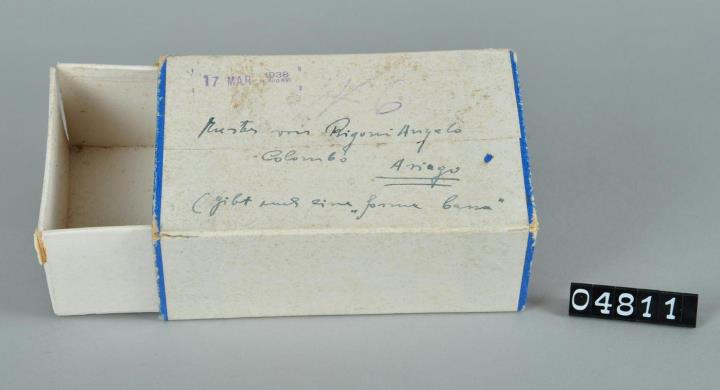 17 MAR 1938
Muster von Rigoni Angelo
Colombo Asiago
(gibt auch eine „forma bassa"
04811